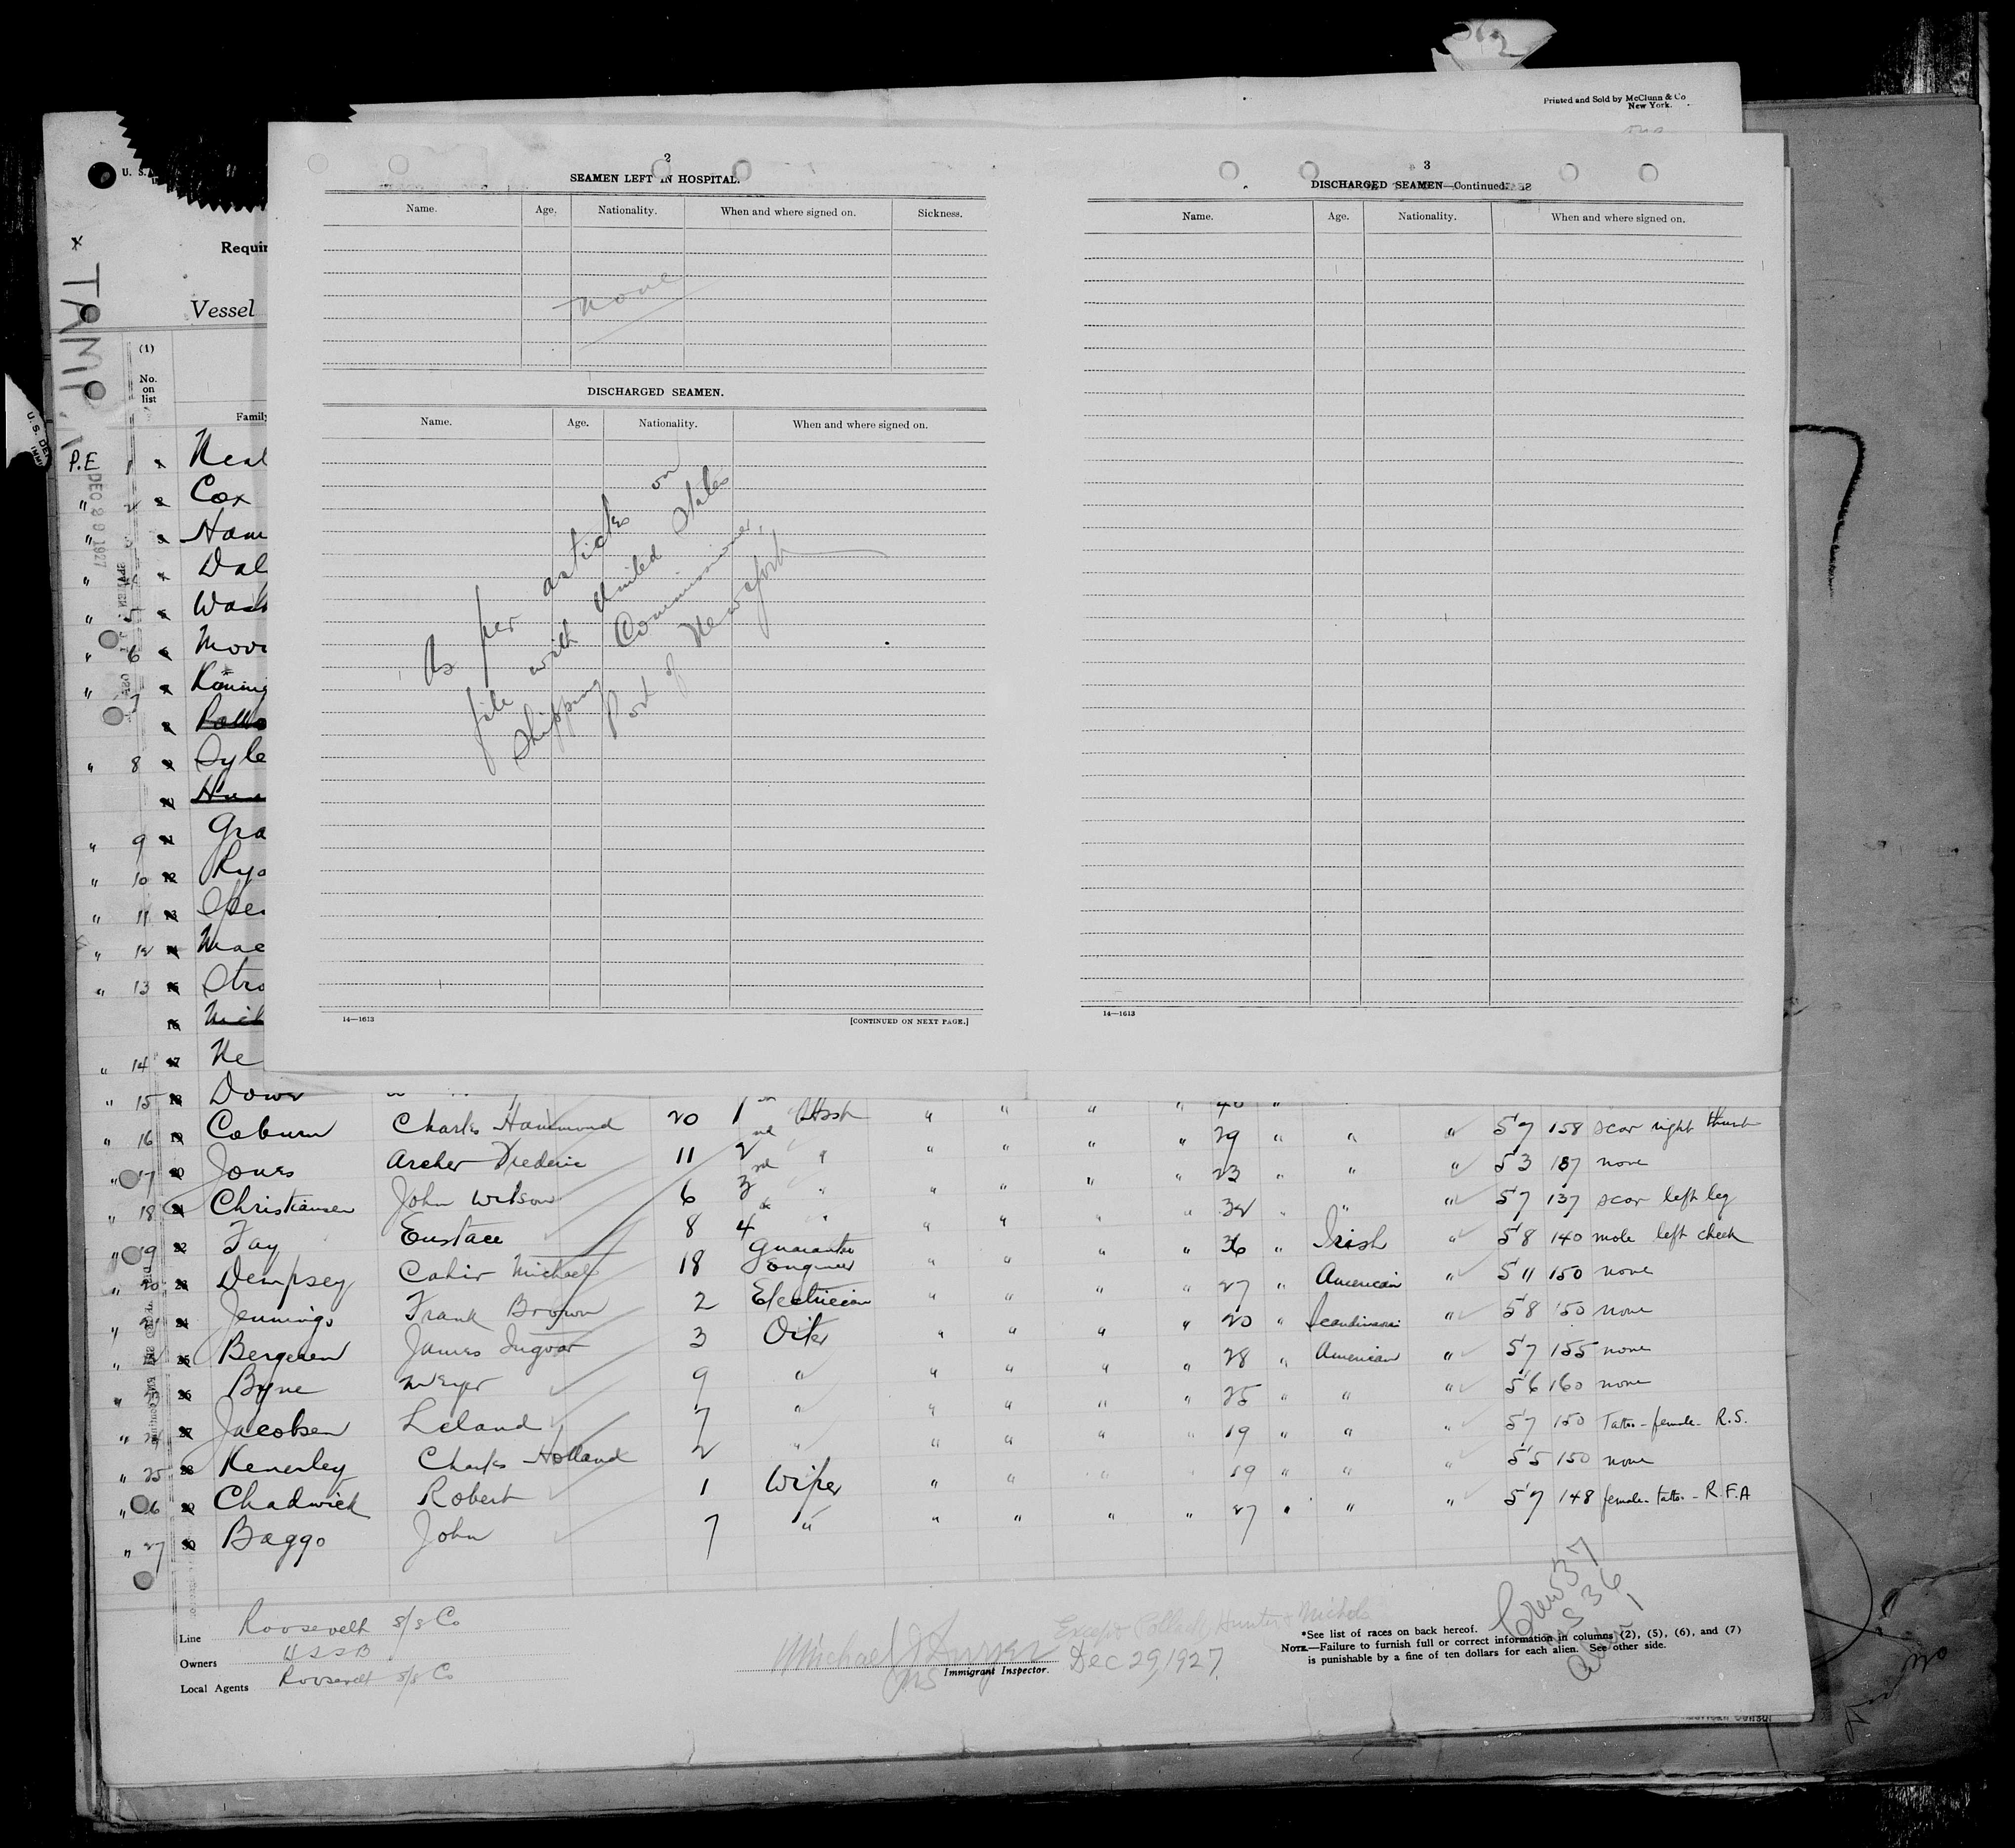 Printed and Sold by McClunn & Co
New York.
2
SEAMEN LEFT IN HOSPITAL.
Name. Age. Nationality. When and where signed on. Sickness.
None
DISCHARGED SEAMEN.
Name. Age. Nationality. When and where signed on.
As per articles on
file with United States
Shipping Commissioner,
Port of Newport
14—1613 [CONTINUED ON NEXT PAGE.]
3
DISCHARGED SEAMEN—Continued.
Name. Age. Nationality. When and where signed on.
14—1613
U. S.
Requir
Vessel
(1)
No.
on
list
Family
TAMP
DEC 29 1927
P.E 1 Neal
" 2 Cox
" 3 Ham
" Dal
" 5 Wash
" 6 Moor
" 7 Rowing
Pollo
" 8 Syle
Hun
" 9 Gra
" 10 Rya
" 11 Spen
" 12 Mac
" 13 Stro
16 Nich
" 14 17 Ne
" 15 18 Dowe
" 16 19 Coburn Charles Hammond 20 1st Asst " " " " 29 " " " 5'7 158 scar right thumb
" 17 20 Jones Archer Frederic 11 2nd " " " " " 23 " " " 5'3 137 none
" 18 21 Christiansen John Wilson 6 3rd " " " " " 32 " " " 5'7 137 scar left leg
" 19 22 Fay Eustace 8 4 " " " " " 36 " Irish " 5'8 140 mole left cheek
" 20 23 Dempsey Cahir Michael 18 Guarantee Engineer " " " " 27 " American " 5'11 150 none
" 21 24 Jennings Frank Brown 2 Electrician " " " " 20 " Scandinavian " 5'8 150 none
" 22 25 Bergesen James Ingvar 3 Oiler " " " " 28 " American " 5'7 155 none
" 23 26 Byne Meyer 9 " " " " " 25 " " " 5'6 160 none
" 24 27 Jacobsen Leland 7 " " " " " 19 " " " 5'7 150 Tattoo - female - R.S.
" 25 28 Kenerley Charles Holland 2 " " " " " 19 " " " 5'5 150 none
" 26 29 Chadwick Robert 1 Wiper " " " " 27 " " " 5'7 148 female - tattoo - R.F.A
" 27 30 Baggo John 7 "
Line Roosevelt S/S Co
Owners USSB
Local Agents Roosevelt S/S Co
Except Pollack, Hunter & Nichols
Michael J
Immigrant Inspector. Dec 29, 1927
*See list of races on back hereof.
NOTE.—Failure to furnish full or correct information in columns (2), (5), (6), and (7)
is punishable by a fine of ten dollars for each alien. See other side.
Crew 37
US 36
Alien 1